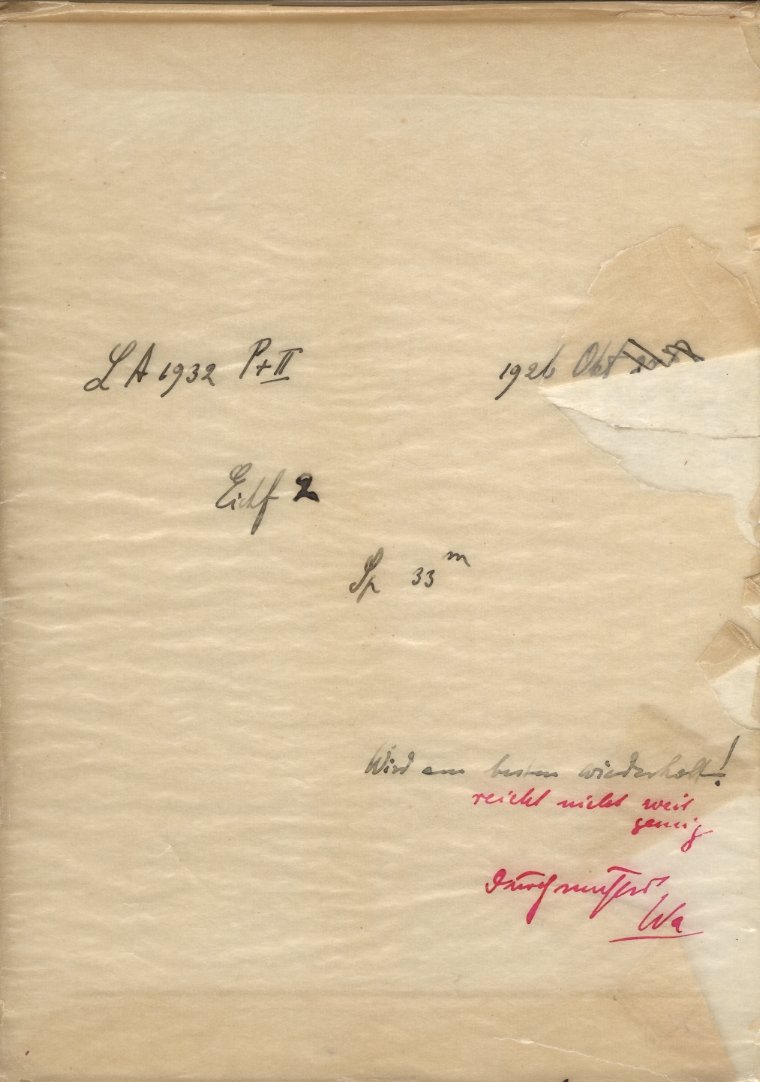 LA 1932 P+II 1926 Okt
Eichf 2
Sp 33 m
Wird am besten wiederholt!
reicht nicht weit
genug
Durchmustert
Wa